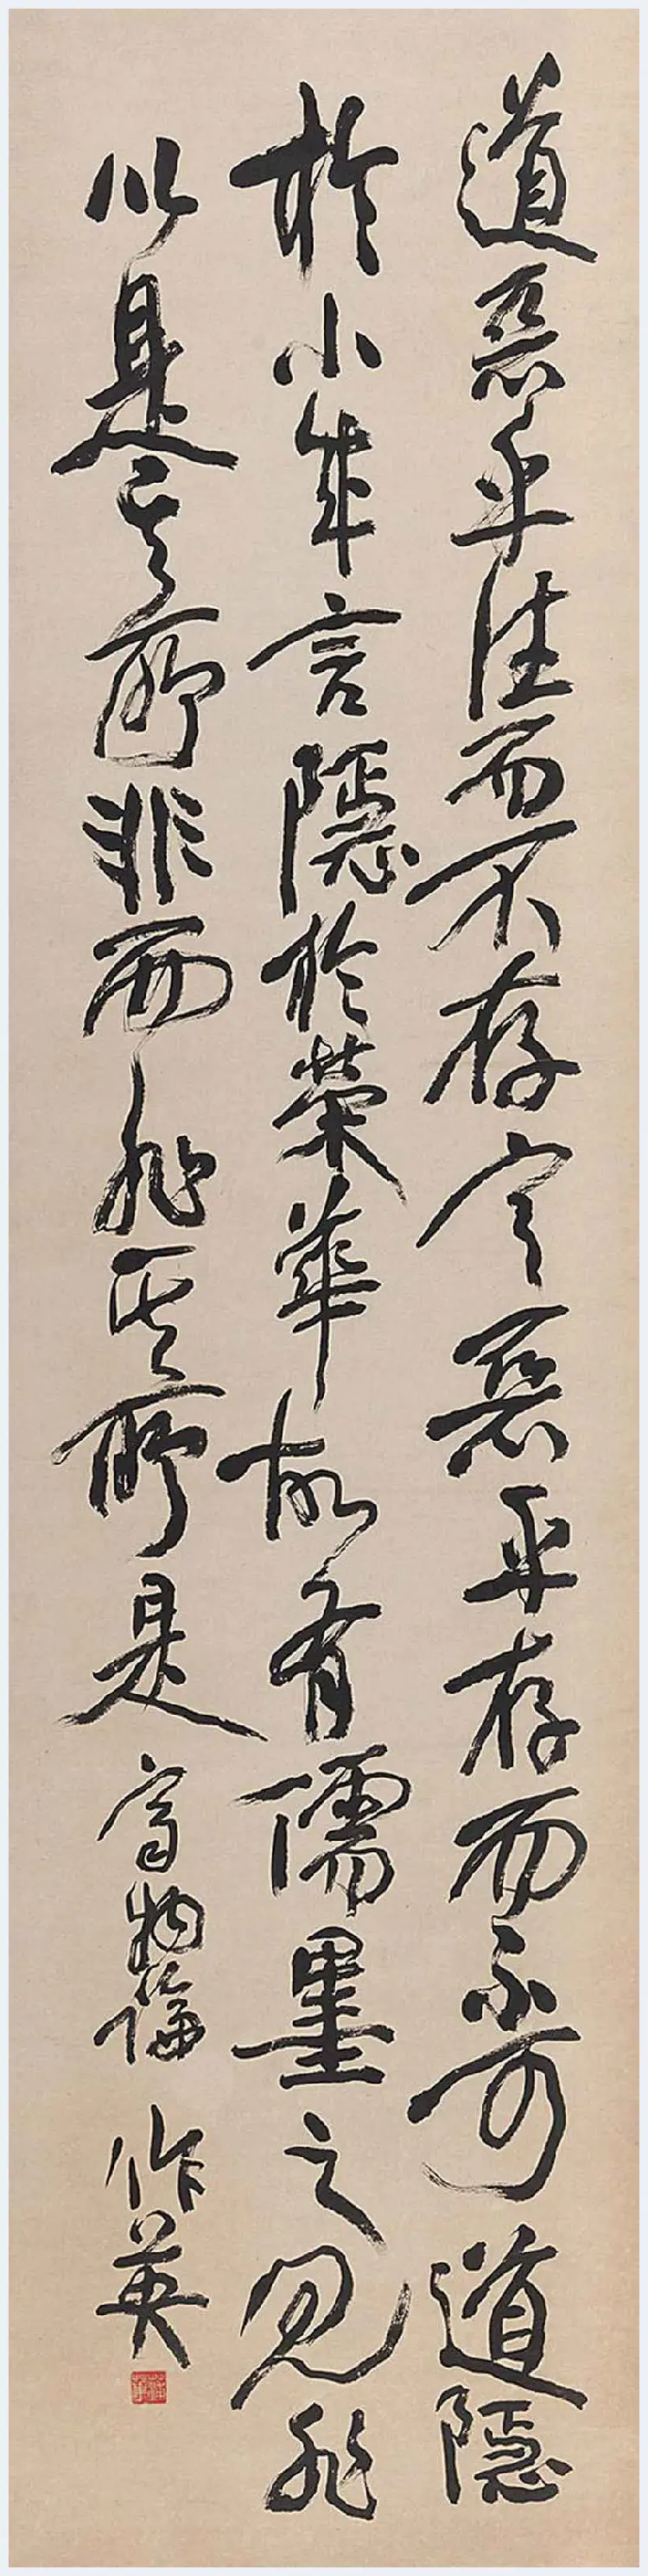 道惡乎往而不存言惡乎存而不可道隱
於小成言隱於榮華故有儒墨之見非
以是其所非而非其所是 齊物論 作英
蒲華